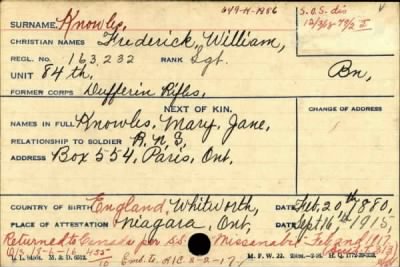 649-K-1986
S.O.S. dis
SURNAME. Knowles,
CHRISTIAN NAMES Frederick, William,
REGL. NO. 163,232 RANK Sgt.
UNIT 84th. Bn,
FORMER CORPS Dufferin Rifles,
NEXT OF KIN. CHANGE OF ADDRESS
NAMES IN FULL Knowles, Mary, Jane,
RELATIONSHIP TO SOLDIER
ADDRESS Box 554, Paris, Ont,
COUNTRY OF BIRTH England, Whitworth, DATE Feb, 20th 1880,
PLACE OF ATTESTATION Niagara, Ont, DATE Sept 16th 1915,
Returned to Canada per S.S. "Missanabie" Feb 1917
O/S 18-6-16
M. F. W. 22.